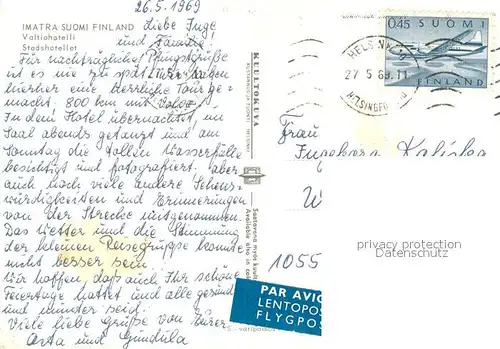 26.5.1969
IMATRA SUOMI FINLAND
Valtiohotelli
Stadshotellet
Liebe Inge
und Familie!
Für nachträgliche Pfingstgrüße
ist es nie zu spät. Wir haben
hierher eine herrliche Tour ge-
macht. 800 km mit Volvo.
In dem Hotel übernachtet, im
Saal abends getanzt und am
Sonntag die tollen Wasserfälle
besichtigt und fotografiert. Aber
auch noch viele andere Sehens-
würdigkeiten und Erinnerungen
von der Strecke mitgenommen.
Das Wetter und die Stimmung
der kleinen Reisegruppe konnte
nicht besser sein.
Wir hoffen, daß auch Ihr schöne
Feiertage hattet und alle gesund
und munter seid.
Viele liebe Grüße von Eurer
Asta und Gundula
KUULTOKUVA
HELSINKI
Saatavana myös
Available also in
0,45 SUOMI
FINLAND
HELSINKI
27.5.69.11
HELSINGFORS
Frau
Ingeborg Kaliska
W
1055
privacy protection
Datenschutz
PAR AVIO
LENTOPOS
FLYGPOS